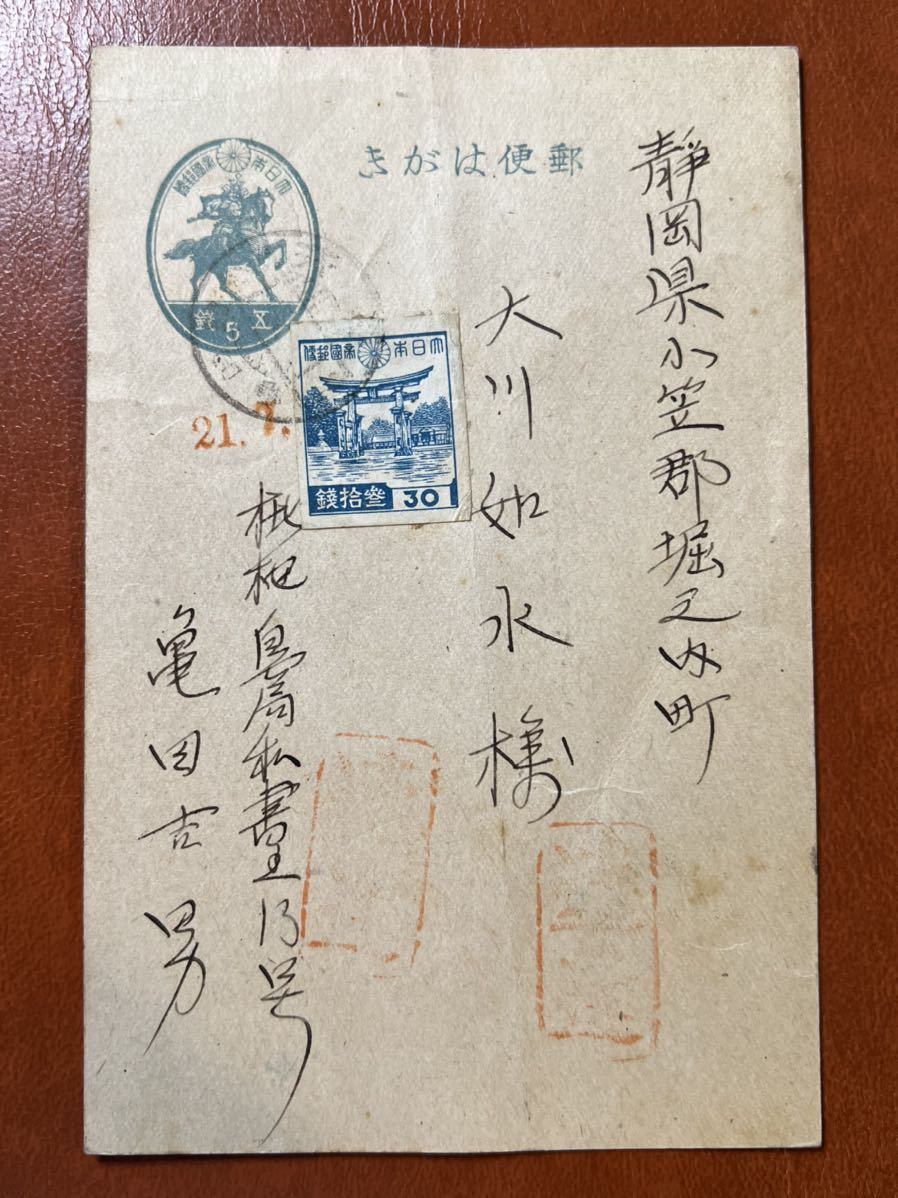 郵便はがき
大日本帝國郵便
五5錢
大日本帝國郵便
参拾錢 30
21.7.
静岡県小笠郡堀之内町
大川如水様
枇杷島局私書函13号
亀田吉男